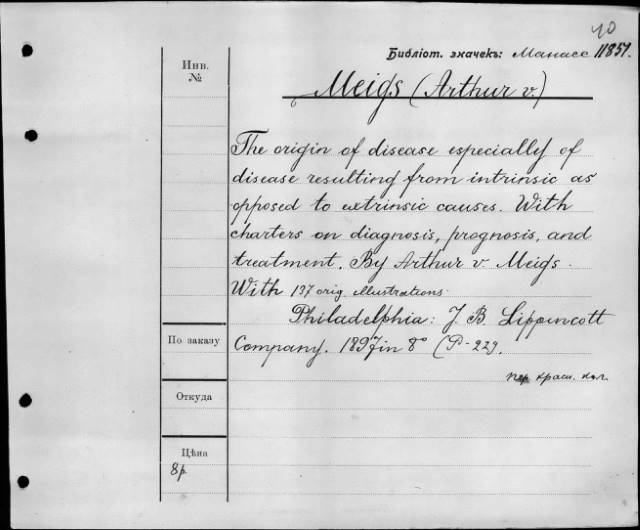 40
Библіот. значекъ: Манасс 11851.
Инв.
№
Meigs (Arthur v.)
The origin of disease especially of
disease resulting from intrinsic as
opposed to extrinsic causes. With
charters on diagnosis, prognosis, and
treatment. By Arthur v. Meigs.
With 137 orig. illustrations.
Philadelphia: J. B. Lippincott
По заказу
Company. 1897 in 8° (P-229.
пер. краш. кол.
Откуда
Цѣна
8р